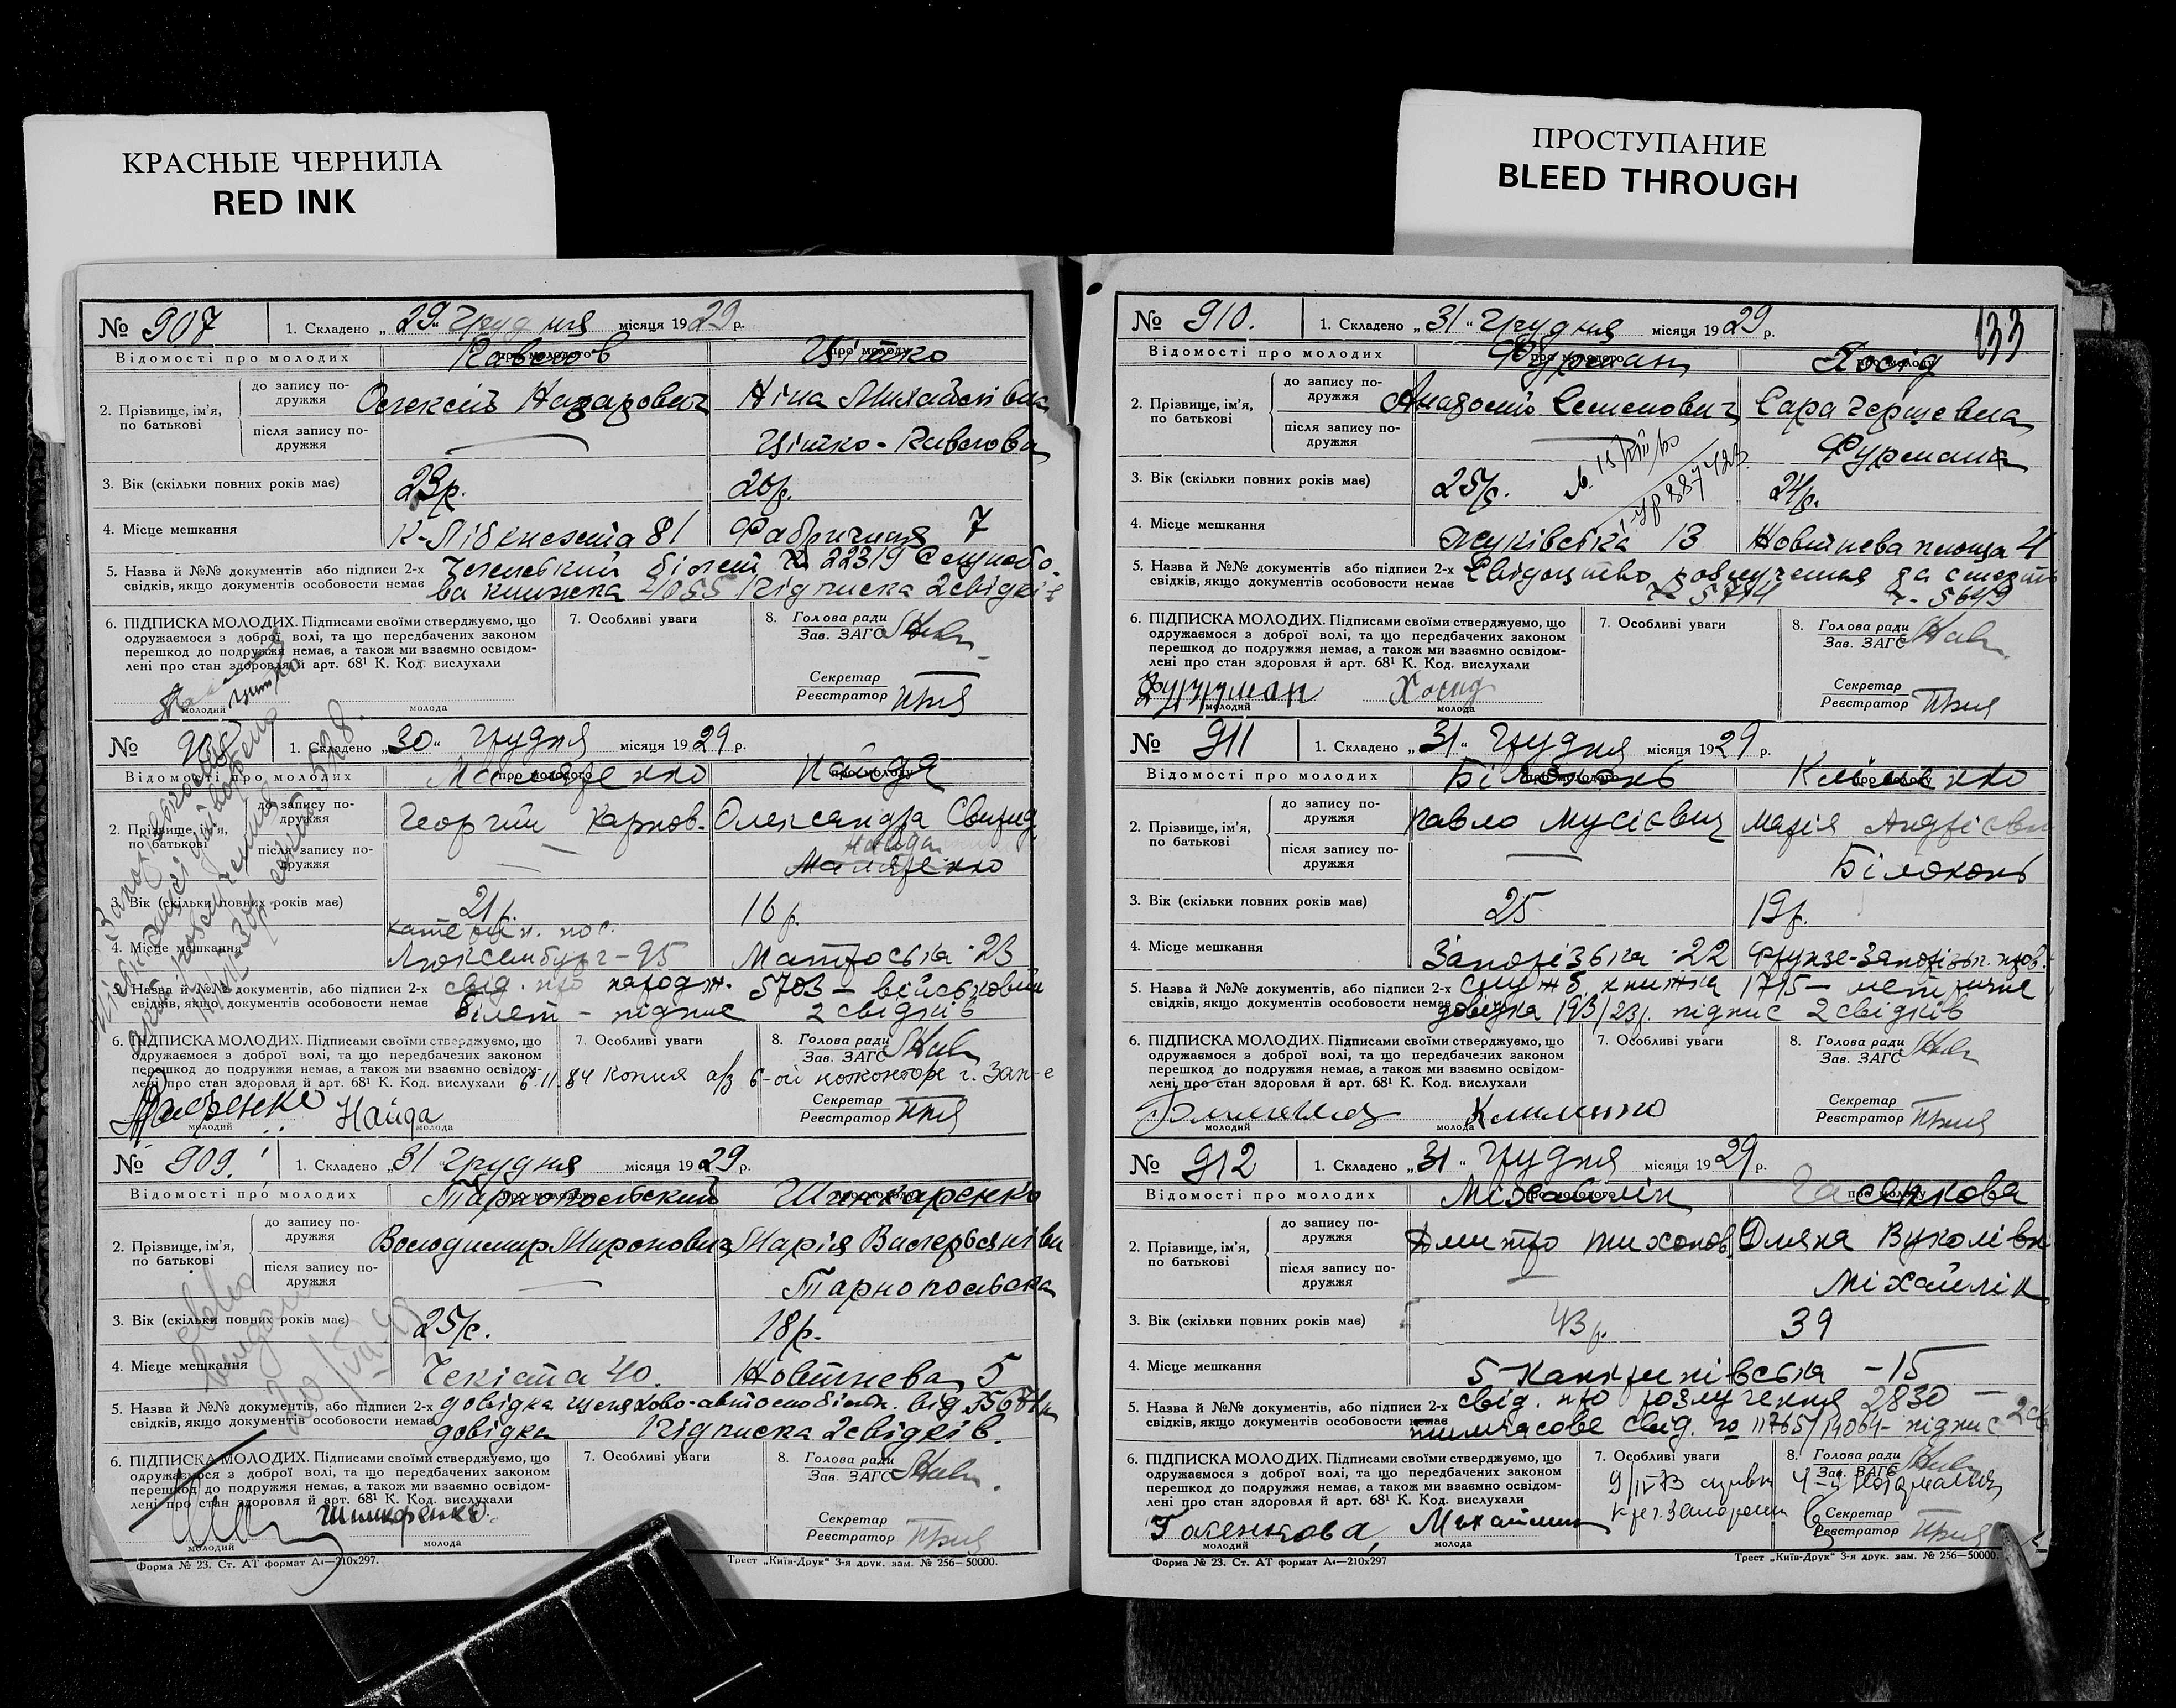 КРАСНЫЕ ЧЕРНИЛА
RED INK
ПРОСТУПАНИЕ
BLEED THROUGH
№ 907 1. Складено „29“ Грудня місяця 1929 р.
Відомості про молодих про молодого про молоду
Павлов Цітко
2. Прізвище, ім'я, по батькові
до запису подружжя Олексій Назарович Ніна Михайлівна
після запису подружжя — Цітко-Павлова
3. Вік (скільки повних років має) 23р. 20р.
4. Місце мешкання К-Лібкнехта 81 Фабрична 7
5. Назва й №№ документів або підписи 2-х Членський білет № 22319 Службо-
свідків, якщо документів особовости немає ва книжка 4055 Підписка 2 свідків
6. ПІДПИСКА МОЛОДИХ. Підписами своїми стверджуємо, що
одружаємося з доброї волі, та що передбачених законом
перешкод до подружжя немає, а також ми взаємно освідом-
лені про стан здоровля й арт. 68¹ К. Код. вислухали
7. Особливі уваги
8. Голова ради
Зав. ЗАГС
Секретар
Реєстратор
молодий молода
№ 908 1. Складено „30“ Грудня місяця 1929 р.
Відомості про молодих про молодого про молоду
Маляренко Найда
2. Прізвище, ім'я, по батькові
до запису подружжя Георгий Карпов. Олександра Свирид
після запису подружжя — Найда
Маляренко
3. Вік (скільки повних років має) 21р. 16р.
Катерин. пос.
4. Місце мешкання Люксембург-95 Матроська 23
5. Назва й №№ документів, або підписи 2-х свід. про народж. 5703 — військовий
свідків, якщо документів особовости немає білет — підпис 2 свідків
6. ПІДПИСКА МОЛОДИХ. Підписами своїми стверджуємо, що
одружаємося з доброї волі, та що передбачених законом
перешкод до подружжя немає, а також ми взаємно освідом-
лені про стан здоровля й арт. 68¹ К. Код. вислухали
6.11.84 копия
7. Особливі уваги
8. Голова ради
Зав. ЗАГС
Секретар
Реєстратор
Маляренко Найда
молодий молода
№ 909 1. Складено „31 Грудня місяця 1929 р.
Відомості про молодих про молодого про молоду
Тарнопольский Шинкаренко
2. Прізвище, ім'я, по батькові
до запису подружжя Володимир Миронович Марія Валерьянівна
після запису подружжя — Тарнопольська
3. Вік (скільки повних років має) 25р. 18р.
4. Місце мешкання Чекіста 40. Новітнева 5
5. Назва й №№ документів, або підписи 2-х довідка
свідків, якщо документів особовости немає довідка Підписка 2 свідків.
6. ПІДПИСКА МОЛОДИХ. Підписами своїми стверджуємо, що
одружаємося з доброї волі, та що передбачених законом
перешкод до подружжя немає, а також ми взаємно освідом-
лені про стан здоровля й арт. 68¹ К. Код. вислухали
7. Особливі уваги
8. Голова ради
Зав. ЗАГС
Секретар
Реєстратор
молодий молода
Форма № 23. Ст. АТ формат А4—210х297. Трест „Київ-Друк“ 3-я друк. зам. № 256—50000.
133
№ 910. 1. Складено „31“ Грудня місяця 1929 р.
Відомості про молодих про молодого про молоду
Фурман Хосід
2. Прізвище, ім'я, по батькові
до запису подружжя Анатолій Семенович Сара Гершевна
після запису подружжя — Фурман
3. Вік (скільки повних років має) 25р. 24р.
4. Місце мешкання Жуківська 13 Новітнева площа 4
5. Назва й №№ документів, або підписи 2-х Свідоцтво розлучення за смертю
свідків, якщо документів особовости немає № 5714 № 5649
6. ПІДПИСКА МОЛОДИХ. Підписами своїми стверджуємо, що
одружаємося з доброї волі, та що передбачених законом
перешкод до подружжя немає, а також ми взаємно освідом-
лені про стан здоровля й арт. 68¹ К. Код. вислухали
7. Особливі уваги
8. Голова ради
Зав. ЗАГС
Секретар
Реєстратор
Фурман Хосид
молодий молода
№ 911 1. Складено „31“ Грудня місяця 1929 р.
Відомості про молодих про молодого про молоду
Білоконь Кліменко
2. Прізвище, ім'я, по батькові
до запису подружжя Павло Мусієвич Марія Андріевн
після запису подружжя — Білоконь
3. Вік (скільки повних років має) 25 19р.
4. Місце мешкання Запорізька 22 Фрунзе-Запорізьк. пров.
5. Назва й №№ документів, або підписи 2-х служб. книжка 1715 — метрична
свідків, якщо документів особовости немає довідка 193/23р. підпис 2 свідків
6. ПІДПИСКА МОЛОДИХ. Підписами своїми стверджуємо, що
одружаємося з доброї волі, та що передбачених законом
перешкод до подружжя немає, а також ми взаємно освідом-
лені про стан здоровля й арт. 68¹ К. Код. вислухали
7. Особливі уваги
8. Голова ради
Зав. ЗАГС
Секретар
Реєстратор
Клименко
молодий молода
№ 912 1. Складено „31“ Грудня місяця 1929 р.
Відомості про молодих про молодого про молоду
Міхайлік Гасенкова
2. Прізвище, ім'я, по батькові
до запису подружжя Дмитро Тихонов. Уляна Вуколівн
після запису подружжя — Міхайлік
3. Вік (скільки повних років має) 43р. 39
4. Місце мешкання 5-Канкринівська -15
5. Назва й №№ документів, або підписи 2-х свід. про розлучення 2830 —
свідків, якщо документів особовости немає тимчасове свід. № 11765/14064 - підпис 2 св
6. ПІДПИСКА МОЛОДИХ. Підписами своїми стверджуємо, що
одружаємося з доброї волі, та що передбачених законом
перешкод до подружжя немає, а також ми взаємно освідом-
лені про стан здоровля й арт. 68¹ К. Код. вислухали
7. Особливі уваги
8. Голова ради
Зав. ЗАГС
Секретар
Реєстратор
Гасенкова, Михайлик
молодий молода
Форма № 23. Ст. АТ формат А4—210х297 Трест „Київ-Друк“ 3-я друк. зам. № 256—50000.